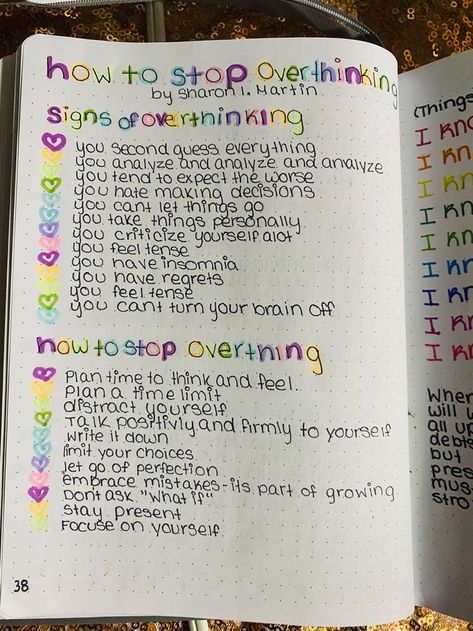 how to stop overthinking
by Sharon I. Martin
signs of overthinking
you second guess everything
you analyze and analyze and analyze
you tend to expect the worse
you hate making decisions
you cant let things go
you take things personally
you criticize yourself alot
you feel tense
you have insomnia
you have regrets
you feel tense
you cant turn your brain off
how to stop overthning
Plan time to think and feel.
Plan a time limit
distract yourself
Talk positivly and firmly to yourself
write it down
limit your choices
let go of perfection
embrace mistakes-its part of growing
Dont ask "what if"
stay present
FOCUSE on yourself
38
(Things
I kno
I kn
I kn
I kn
I kn
I kn
I kn
I kn
I kn
When
will
all u
debt
but
pres
mus
stro